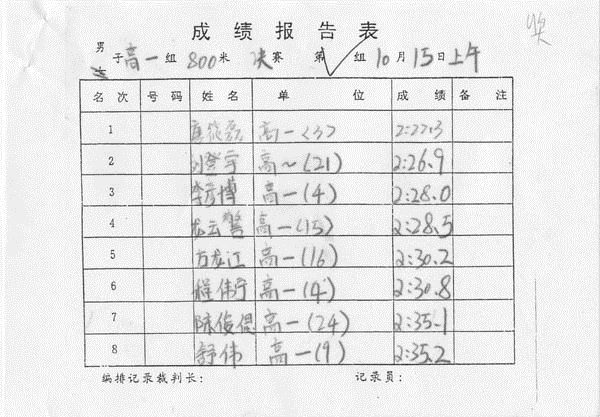 奖
成绩报告表
男子高一组 800米 决赛 第 组 10月15日上午
名次 号码 姓名 单位 成绩 备注
1 高一(3) 2:22.3
2 刘登宇 高一(21) 2:26.9
3 李彦博 高一(4) 2:28.0
4 龙云 高一(15) 2:28.5
5 方龙江 高一(16) 2:30.2
6 程伟宁 高一(4) 2:30.8
7 陈俊 高一(24) 2:35.1
8 舒伟 高一(9) 2:35.2
编排记录裁判长: 记录员: